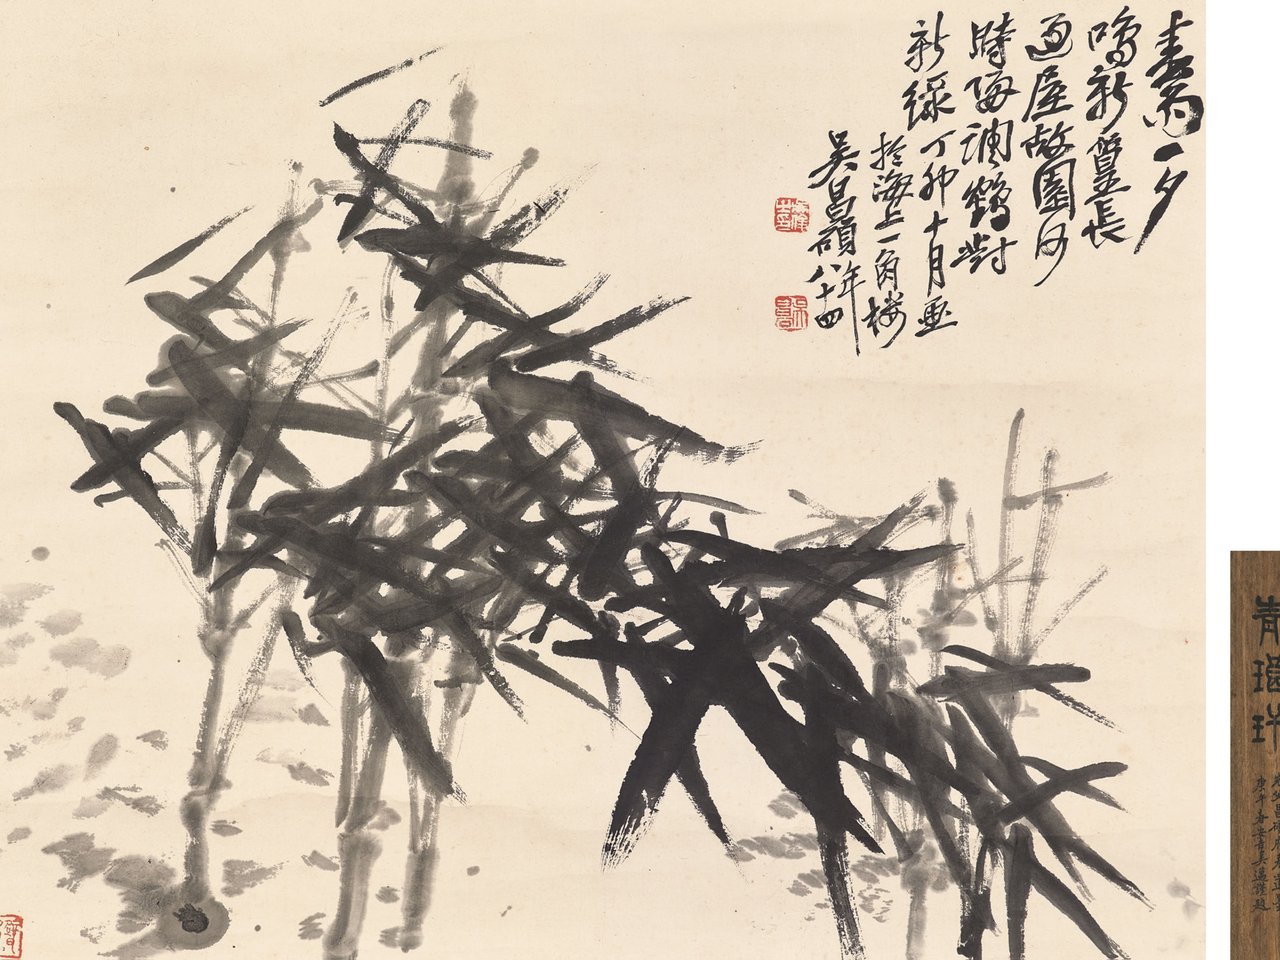 春雷一夕
鳴新篁長
過屋故園何
時歸調鶴對
新綠丁卯十月畫
於海上一角樓
吳昌碩年八十四
青琅玕
庚午春